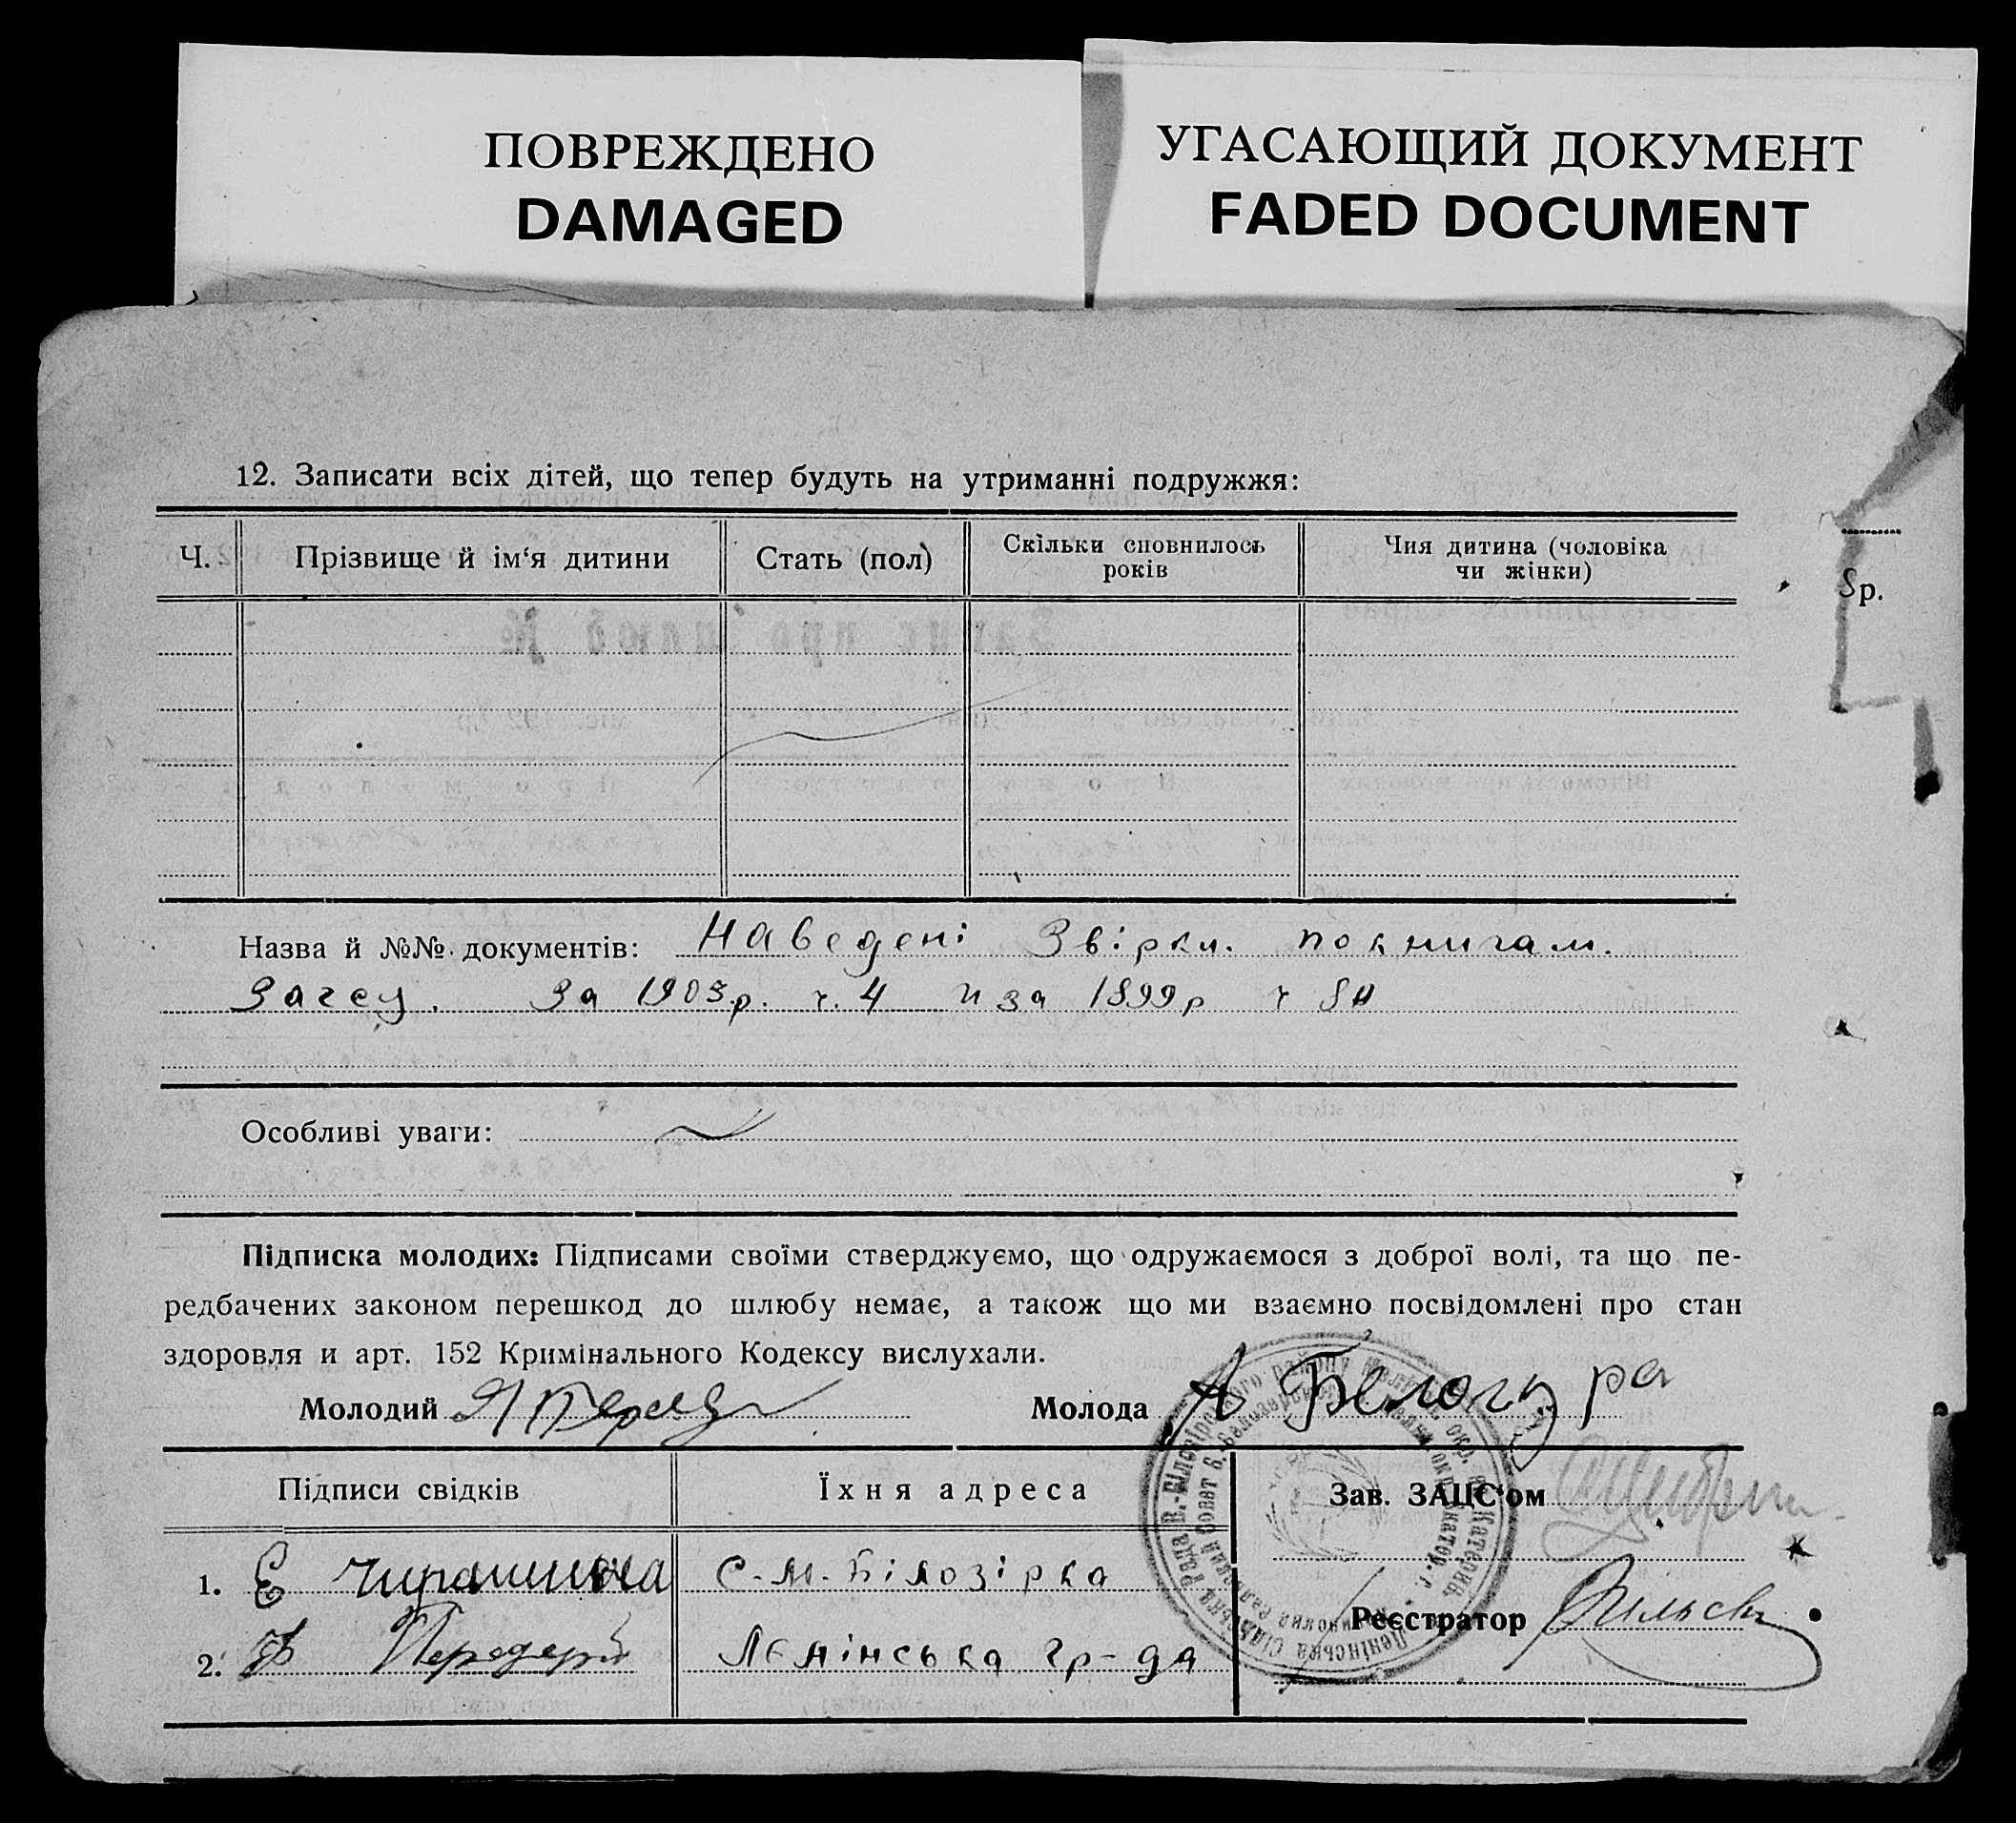 ПОВРЕЖДЕНО
DAMAGED
УГАСАЮЩИЙ ДОКУМЕНТ
FADED DOCUMENT
12. Записати всіх дітей, що тепер будуть на утриманні подружжя:
Ч. Прізвище й ім‘я дитини Стать (пол) Скільки сповнилось років Чия дитина (чоловіка чи жінки)
р.
Назва й №№ документів: Наведені Звірки. по книгам.
Загсу. За 1903р. ч. 4 и за 1899р ч
Особливі уваги:
Підписка молодих: Підписами своїми стверджуємо, що одружаємося з доброї волі, та що пе-
редбачених законом перешкод до шлюбу немає, а також що ми взаємно посвідомлені про стан
здоровля и арт. 152 Кримінального Кодексу вислухали.
Молодий Молода А Білогура
Підписи свідків Їхня адреса Зав. ЗАЦС‘ом
1. Е с. М. Білозірка
Реєстратор
2. Передерій Ленінська гр-да